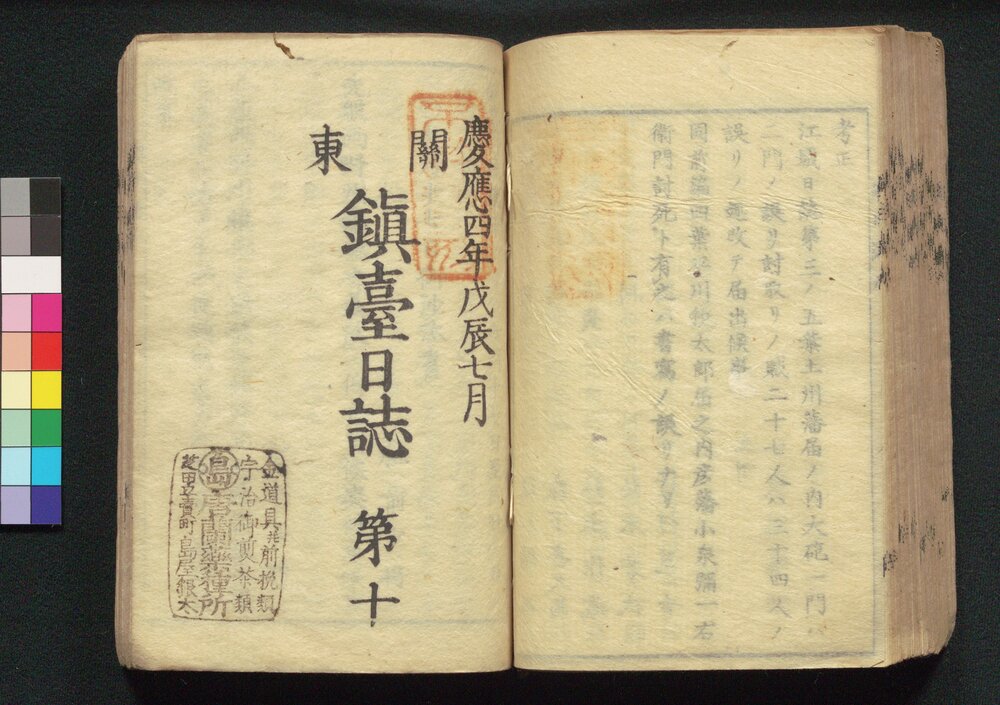 考正
江城日誌第三ノ五葉土州藩届ノ内大砲一門ハ
二門ノ誤リ討取リノ賊二十七人ハ三十四人ノ
誤リノ趣改テ届出候事
同前編四葉 川 太郎届之内彦藩小泉彌一右
衛門討死ト有之ハ書寫ノ誤リナリ
慶應四年戊辰七月
關東
鎮臺日誌 第十
金道具并前挽類
宇治御煎茶類
島 唐蘭藥種所
芝田町 島屋銀太